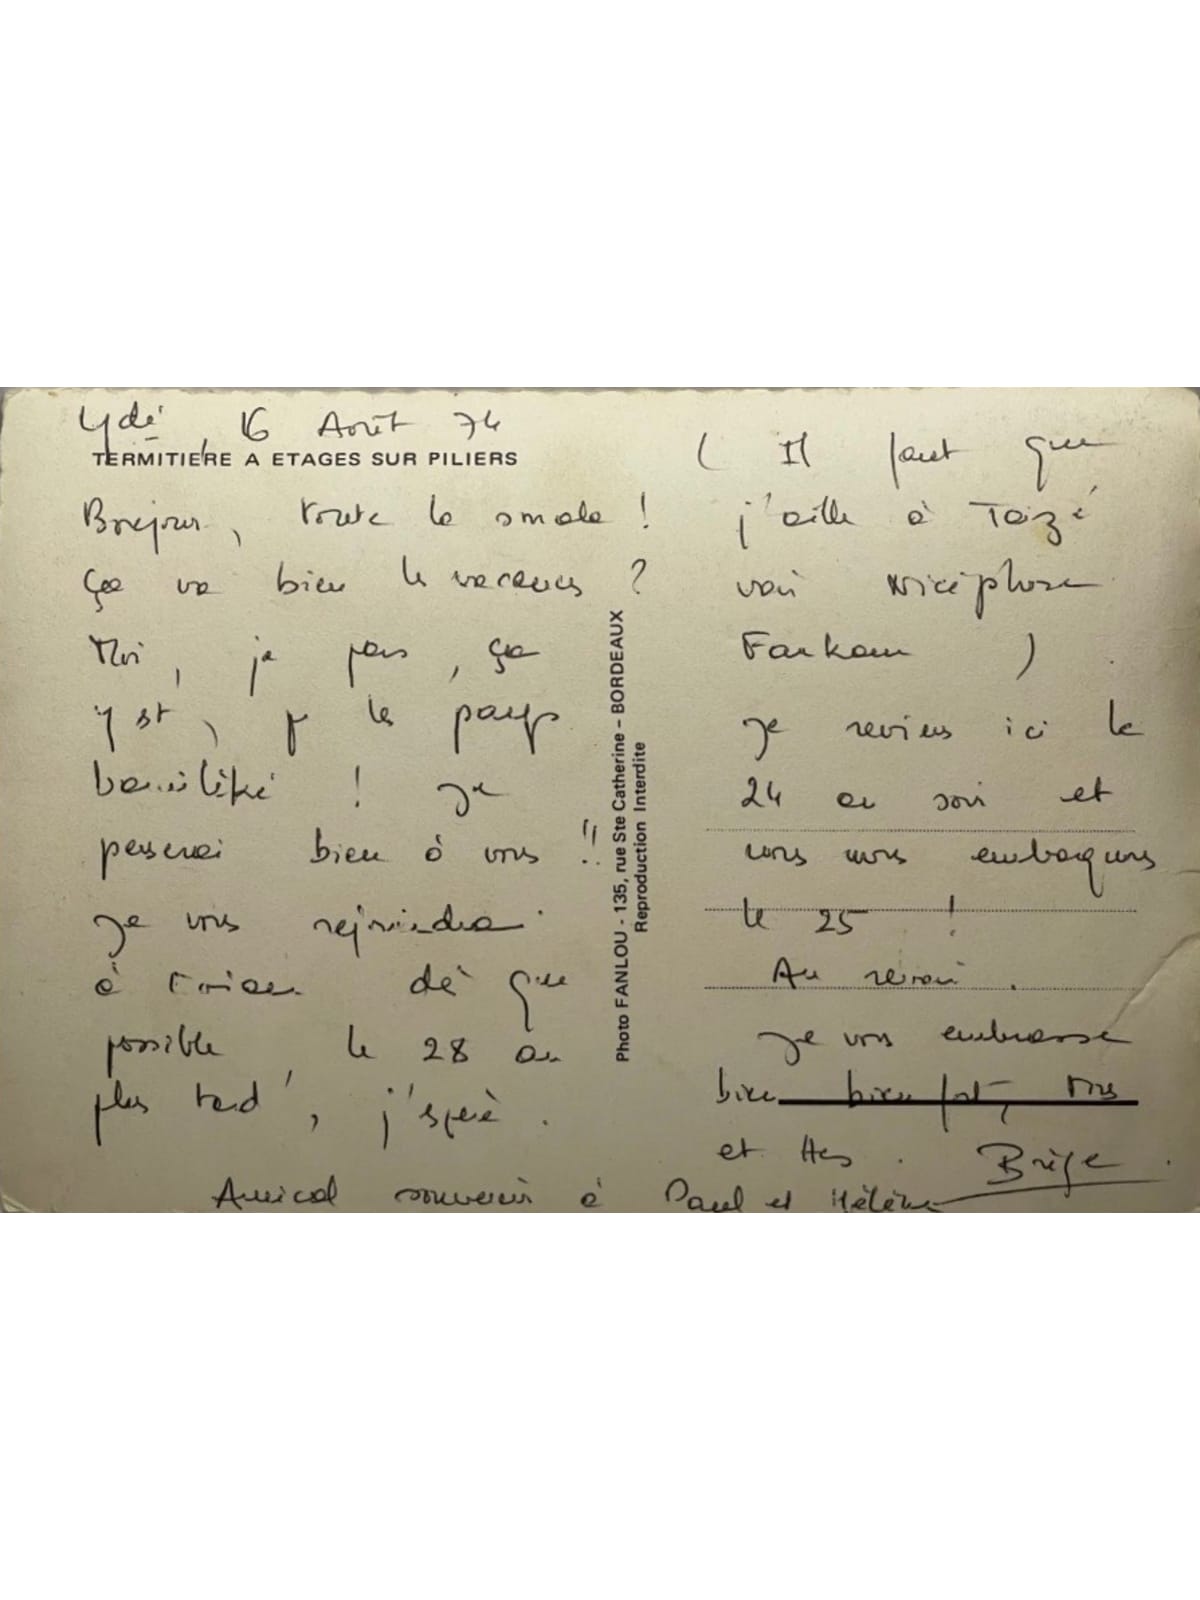 Ydé, 16 Août 74
TERMITIERE A ETAGES SUR PILIERS
Bonjour, toute la smala !
Ça va bien les vacances ?
Moi, je pars, ça
y est, pr le pays
bamiléké ! Je
penserai bien à vous !!
Je vous rejoindrai
à dès que
possible, le 28 au
plus tard, j'espère.
Photo FANLOU - 135, rue Ste Catherine - BORDEAUX
Reproduction Interdite
( Il faut que
j'aille à Taizé
voir Nicéphore
)
Je reviens ici le
24 au soir et
nous nous embarquons
le 25 !
Au revoir.
Je vous embrasse
bien bien fort, tous
et ttes. Brige
Amical souvenir à Paul et Hélène